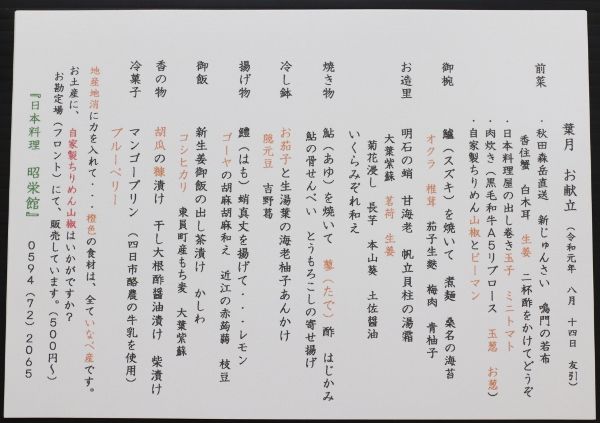 葉月 お献立 (令和元年 八月 十四日 友引)
前菜 ・秋田森岳直送 新じゅんさい 鳴門の若布
香住蟹 白木耳 生姜 二杯酢をかけてどうぞ
・日本料理屋の出し巻き玉子 ミニトマト
・肉炊き(黒毛和牛A5リブロース 玉葱 お葱)
・自家製ちりめん山椒とピーマン
御椀 鱸(スズキ)を焼いて 煮麺 桑名の海苔
オクラ 椎茸 茄子生麩 梅肉 青柚子
お造里 明石の蛸 甘海老 帆立貝柱の湯霜
大葉紫蘇 茗荷 生姜
菊花浸し 長芋 本山葵 土佐醤油
いくらみぞれ和え
焼き物 鮎(あゆ)を焼いて 蓼(たで)酢 はじかみ
鮎の骨せんべい とうもろこしの寄せ揚げ
冷し鉢 お茄子と生湯葉の海老柚子あんかけ
隠元豆 吉野葛
揚げ物 鱧(はも)蛸真丈を揚げて・・・レモン
ゴーヤの胡麻胡麻和え 近江の赤蒟蒻 枝豆
御飯 新生姜御飯の出し茶漬け かしわ
コシヒカリ 東員町産もち麦 大葉紫蘇
香の物 胡瓜の糠漬け 干し大根酢醤油漬け 柴漬け
冷菓子 マンゴープリン (四日市酪農の牛乳を使用)
ブルーベリー
地産地消に力を入れて・・・橙色の食材は、全ていなべ産です。
お土産に、自家製ちりめん山椒はいかがですか?
お勘定場(フロント)にて、販売しています。(500円~)
『日本料理 昭栄館』 0594(72)2065